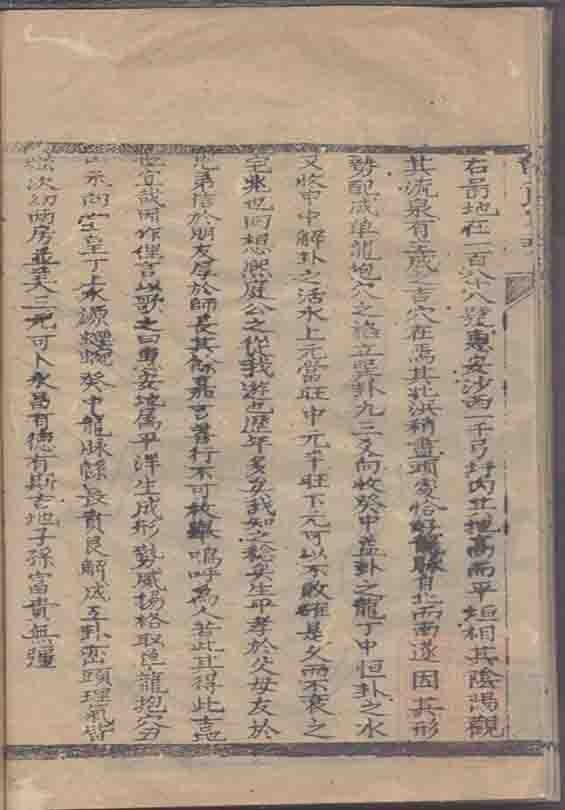 右葬地在一百六十八號惠安沙西一千弓圩內其地高而平垣相其陰湯觀
其流泉有生成之吉穴在焉其北浜稍盡頭處恰好龍脉自北而南遂因其形
勢配成單龍抱穴之格立坐卦九三爻向收癸中益卦之龍丁中恒卦之水
又收申中解卦之活水上元當旺中元平旺下元可以不敗確是久而不衰之
宅兆也回想熙庭公之從我游也歷年多矣我知之稔矣生卬孝於父母友於
兄弟信於朋友厚於師長其餘嘉言善行不可枚舉嗚呼為人若此且得此吉地
也宜哉因作俚言以歌之曰惠安地属平洋生成形勢威揚格取單龍抱穴分
向堂皇丁上水源蠷蜿癸中龍脉綿長貴艮解成互卦巒頭理氣皆
次幼兩房並美三元可卜永昌有德有斯吉地子孫富貴無疆